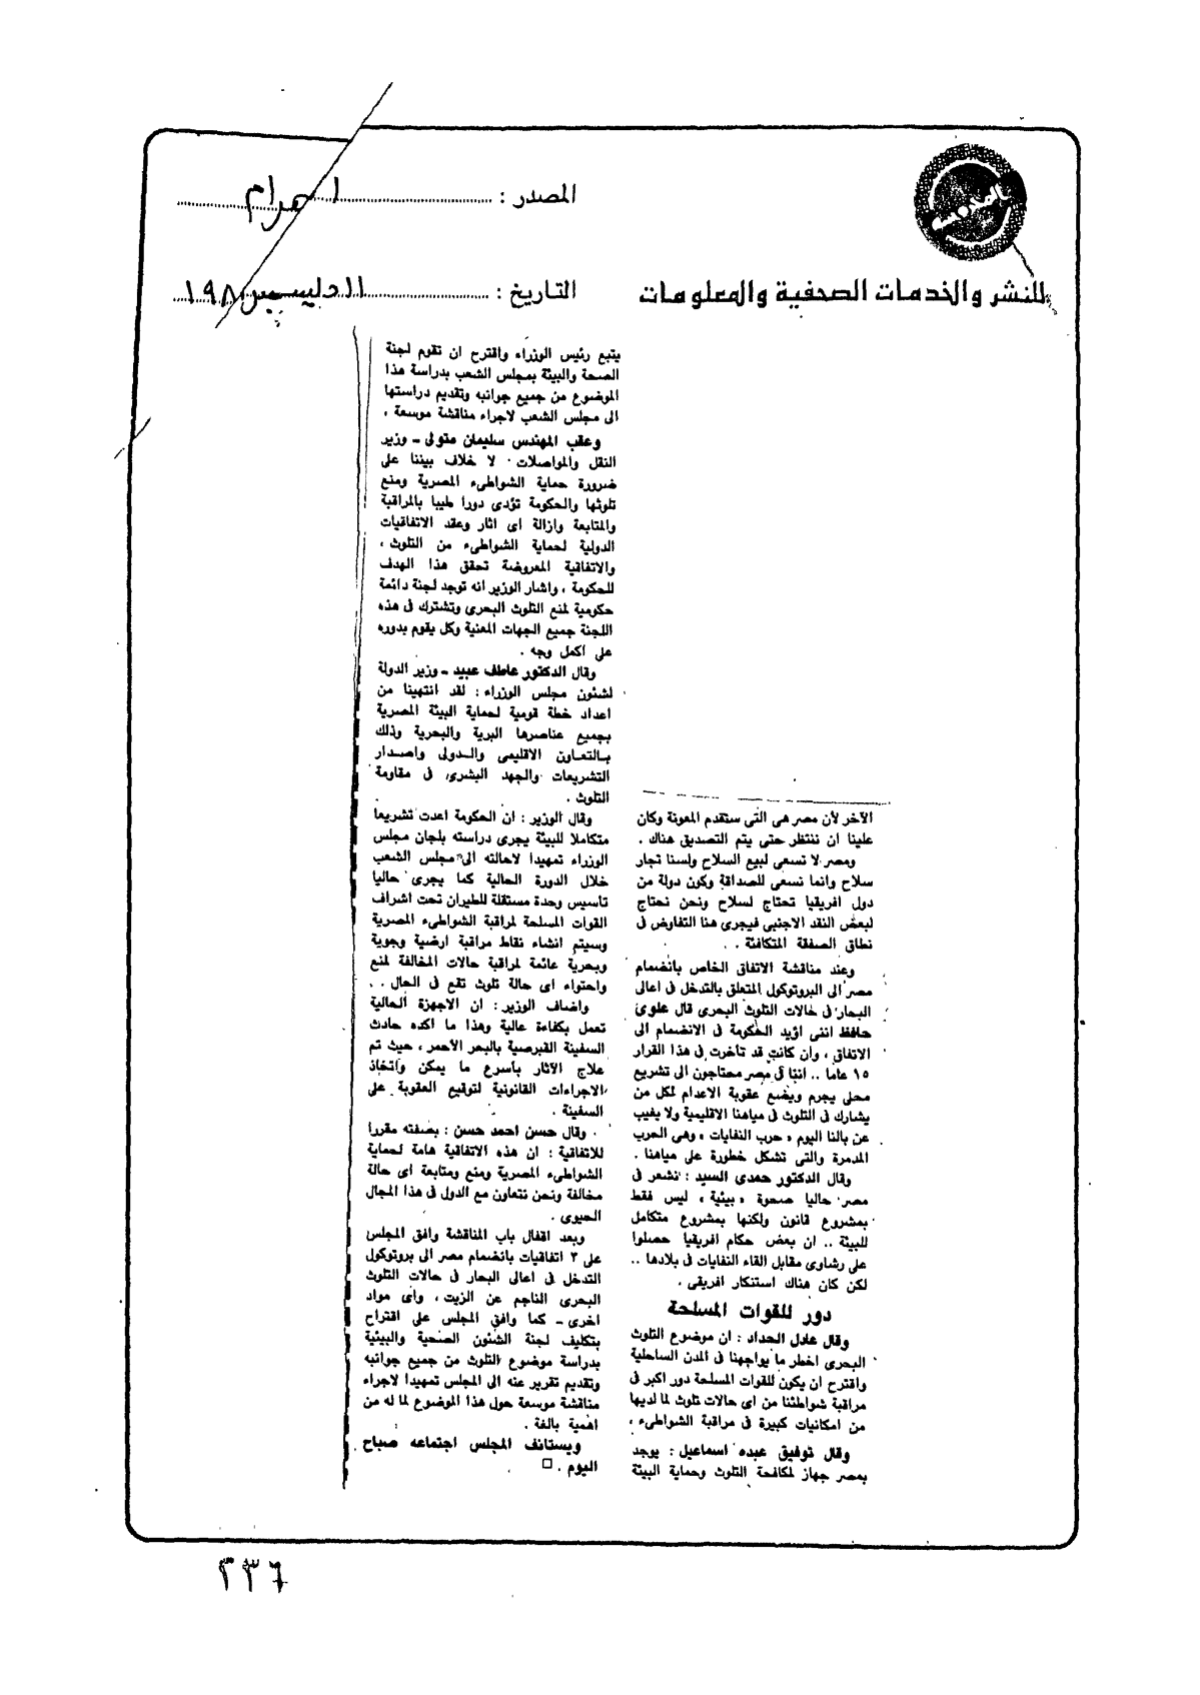 المصدر : اهرام
التاريخ :
للنشر والخدمات الصحفية والمعلومات
الآخر لأن مصر هى التى ستقدم المعونة وكان
علينا ان ننتظر حتى يتم التصديق هناك .
ومصر لا تسعى لبيع السلاح ولسنا تجار
سلاح وانما نسعى للصداقة وكون دولة من
دول افريقيا تحتاج لسلاح ونحن نحتاج
لبعض النقد الاجنبى فيجرى هنا التفاوض فى
نطاق الصفقة المتكافئة . .
وعند مناقشة الاتفاق الخاص بانضمام
مصر الى البروتوكول المتعلق بالتدخل فى اعالى
البحار فى حالات التلوث البحرى قال علوى
حافظ اننى اؤيد الحكومة فى الانضمام الى
الاتفاق ، وان كانت قد تأخرت فى هذا القرار
١٥ عاما .. اننا فى مصر محتاجون الى تشريع
محلى يجرم ويضع عقوبة الاعدام لكل من
يشارك فى التلوث فى مياهنا الاقليمية ولا يغيب
عن بالنا اليوم « حرب النفايات » وهى الحرب
المدمرة والتى تشكل خطورة على مياهنا .
وقال الدكتور حمدى السيد : نشعر فى
مصر حاليا صحوة « بيئية » ليس فقط
بمشروع قانون ولكنها بمشروع متكامل
للبيئة .. ان بعض حكام افريقيا حصلوا
على رشاوى مقابل القاء النفايات فى بلادها ..
لكن كان هناك استنكار افريقى .
دور للقوات المسلحة
وقال عادل الحداد : ان موضوع التلوث
البحرى اخطر ما يواجهنا فى المدن الساحلية
واقترح ان يكون للقوات المسلحة دور اكبر فى
مراقبة شواطئنا من اى حالات تلوث لما لديها
من امكانيات كبيرة فى مراقبة الشواطىء .
وقال توفيق عبده اسماعيل : يوجد
بمصر جهاز لمكافحة التلوث وحماية البيئة
يتبع رئيس الوزراء واقترح ان تقوم لجنة
الصحة والبيئة بمجلس الشعب بدراسة هذا
الموضوع من جميع جوانبه وتقديم دراستها
الى مجلس الشعب لاجراء مناقشة موسعة .
وعقب المهندس سليمان متولى ـ وزير
النقل والمواصلات . لا خلاف بيننا على
ضرورة حماية الشواطىء المصرية ومنع
تلوثها والحكومة تؤدى دورا طيبا بالمراقبة
والمتابعة وازالة اى اثار وعقد الاتفاقيات
الدولية لحماية الشواطىء من التلوث ،
والاتفاقية المعروضة تحقق هذا الهدف
للحكومة ، واشار الوزير انه توجد لجنة دائمة
حكومية لمنع التلوث البحرى وتشترك فى هذه
اللجنة جميع الجهات المعنية وكل يقوم بدوره
على اكمل وجه .
وقال الدكتور عاطف عبيد ـ وزير الدولة
لشئون مجلس الوزراء : لقد انتهينا من
اعداد خطة قومية لحماية البيئة المصرية
بجميع عناصرها البرية والبحرية وذلك
بالتعاون الاقليمى والدولى واصدار
التشريعات والجهد البشرى فى مقاومة
التلوث .
وقال الوزير : ان الحكومة اعدت تشريعا
متكاملا للبيئة يجرى دراسته بلجان مجلس
الوزراء تمهيدا لاحالته الى مجلس الشعب
خلال الدورة الحالية كما يجرى حاليا
تأسيس وحدة مستقلة للطيران تحت اشراف
القوات المسلحة لمراقبة الشواطىء المصرية
وسيتم انشاء نقاط مراقبة ارضية وجوية
وبحرية عائمة لمراقبة حالات المخالفة لمنع
واحتواء اى حالة تلوث تقع فى الحال . .
واضاف الوزير : ان الاجهزة الحالية
تعمل بكفاءة عالية وهذا ما اكده حادث
السفينة القبرصية بالبحر الأحمر ، حيث تم
علاج الآثار بأسرع ما يمكن واتخاذ
الاجراءات القانونية لتوقيع العقوبة على
السفينة .
وقال حسن احمد حسن : بصفته مقررا
للاتفاقية : ان هذه الاتفاقية هامة لحماية
الشواطىء المصرية ومنع ومتابعة اى حالة
مخالفة ونحن نتعاون مع الدول فى هذا المجال
الحيوى .
وبعد اقفال باب المناقشة وافق المجلس
على ٣ اتفاقيات بانضمام مصر الى بروتوكول
التدخل فى اعالى البحار فى حالات التلوث
البحرى الناجم عن الزيت ، واى مواد
اخرى ـ كما وافق المجلس على اقتراح
بتكليف لجنة الشئون الصحية والبيئية
بدراسة موضوع التلوث من جميع جوانبه
وتقديم تقرير عنه الى المجلس تمهيدا لاجراء
مناقشة موسعة حول هذا الموضوع لما له من
اهمية بالغة .
ويستانف المجلس اجتماعه صباح
اليوم . □
٢٣٦